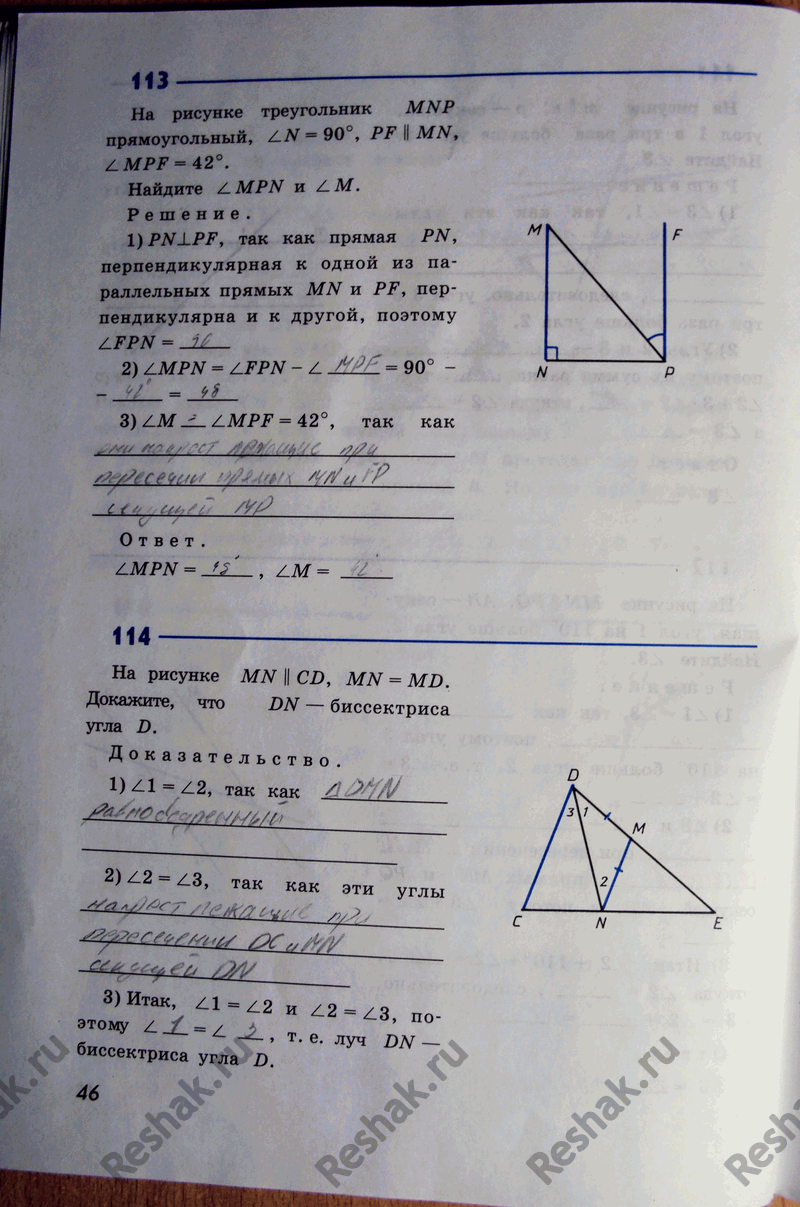 113
На рисунке треугольник MNP
прямоугольный, ∠N = 90°, PF ∥ MN,
∠MPF = 42°.
Найдите ∠MPN и ∠M.
Решение.
1) PN⊥PF, так как прямая PN,
перпендикулярная к одной из па-
раллельных прямых MN и PF, пер-
пендикулярна и к другой, поэтому
∠FPN =
2) ∠MPN = ∠FPN – ∠ MPF = 90° –
– 42° = 48
3) ∠M = ∠MPF = 42°, так как
они накрест лежащие при
пересечении прямых MN и FP
секущей MP
Ответ.
∠MPN = , ∠M = 42°
M
F
N
P
114
На рисунке MN ∥ CD, MN = MD.
Докажите, что DN — биссектриса
угла D.
Доказательство.
1) ∠1 = ∠2, так как ΔDMN
равнобедренный
2) ∠2 = ∠3, так как эти углы
накрест лежащие при
пересечении DC и MN
секущей DN
3) Итак, ∠1 = ∠2 и ∠2 = ∠3, по-
этому ∠ 1 = ∠ 3, т. е. луч DN —
биссектриса угла D.
D
3 1
M
2
C
N
E
46
Reshak.ru
Reshak.ru
Reshak.ru
Reshak.ru